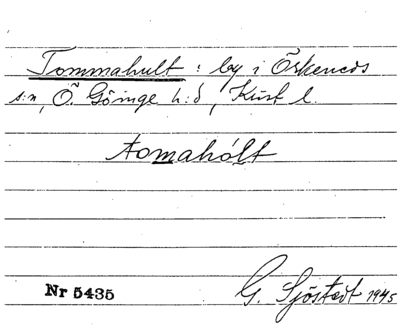 Tommahult : by i Örkeneds
s:n, Ö. Göinge h:d, Krist l.
tomahólt
Nr 5435
G. Sjöstedt 1945